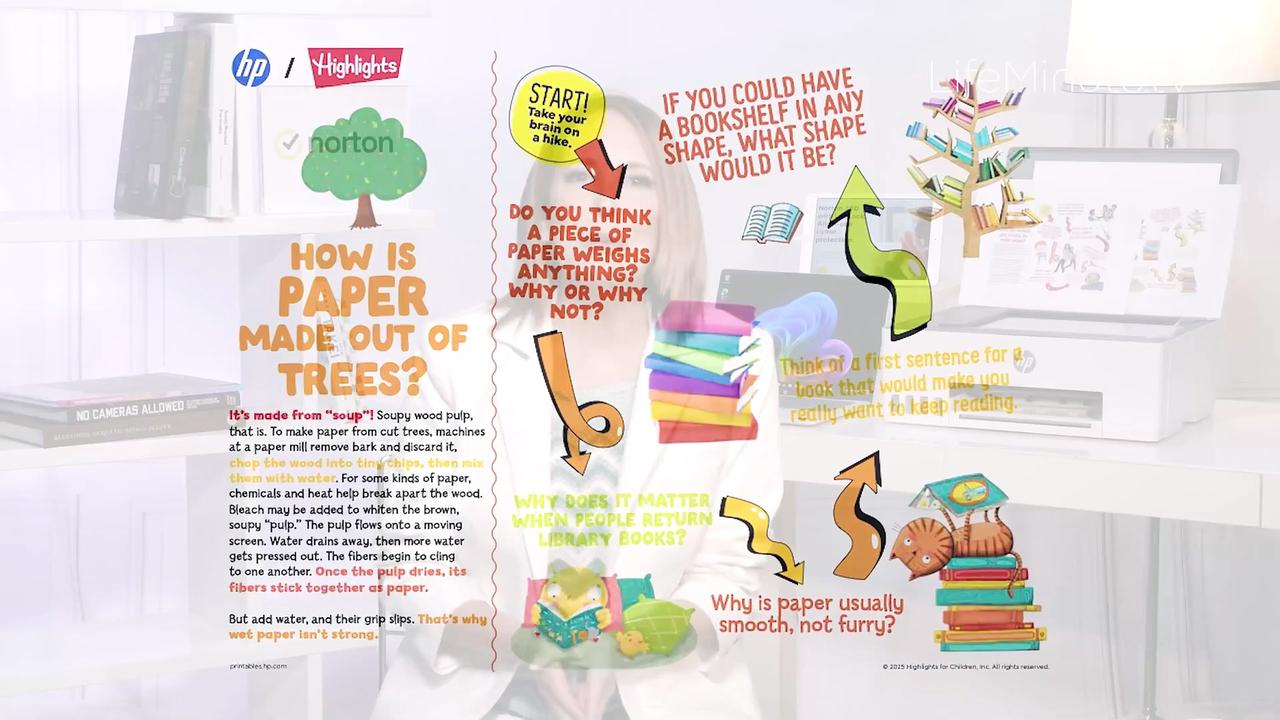 LifeMinute.tv
hp / Highlights
norton
HOW IS
PAPER
MADE OUT OF
TREES?
It's made from "soup"! Soupy wood pulp,
that is. To make paper from cut trees, machines
at a paper mill remove bark and discard it,
chop the wood into tiny chips, then mix
them with water. For some kinds of paper,
chemicals and heat help break apart the wood.
Bleach may be added to whiten the brown,
soupy "pulp." The pulp flows onto a moving
screen. Water drains away, then more water
gets pressed out. The fibers begin to cling
to one another. Once the pulp dries, its
fibers stick together as paper.
But add water, and their grip slips. That's why
wet paper isn't strong.
printables.hp.com
START!
Take your
brain on
a hike.
DO YOU THINK
A PIECE OF
PAPER WEIGHS
ANYTHING?
WHY OR WHY
NOT?
WHY DOES IT MATTER
WHEN PEOPLE RETURN
LIBRARY BOOKS?
Why is paper usually
smooth, not furry?
Think of a first sentence for a
book that would make you
really want to keep reading.
IF YOU COULD HAVE
A BOOKSHELF IN ANY
SHAPE, WHAT SHAPE
WOULD IT BE?
© 2025 Highlights for Children, Inc. All rights reserved.
NO CAMERAS ALLOWED
hp